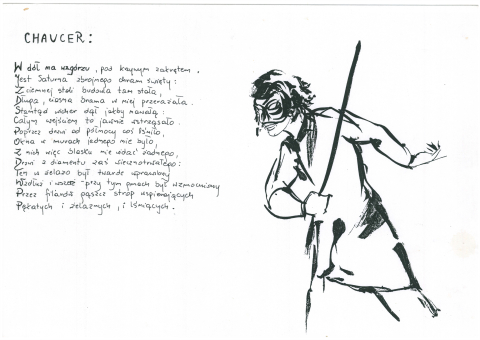 CHAUCER:
W dół na wzgórzu, pod krzywym zakrętem,
Jest Saturna zbrojnego chram święty:
Z ciemnej stali budowla tam stała,
Długa, ciasna brama w niej przerażała.
Stamtąd wicher dął jakby nawałą:
Całym wejściem to jawnie wstrząsało.
Poprzez drzwi od północy coś lśniło,
Okna w murach jednego nie było,
Z nich więc blasku nie widać żadnego,
Drzwi z diamentu zaś wiecznotrwałego:
Ten w żelazo był twardo oprawiony
Wzdłuż i wszerz przy tym gmach był wzmocniony
Przez filarów gąszcz strop wspierających
Pękatych i żelaznych, i lśniących.